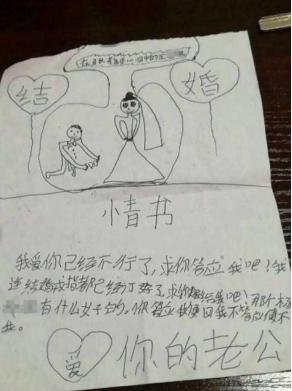 结 婚
情书
我爱你已经不行了,求你答应我吧!我
连结婚戒指都已经订好了,求你跟结我吧!那个
有什么好的。你答应我便回我不答应便不
我。
爱 你的老公